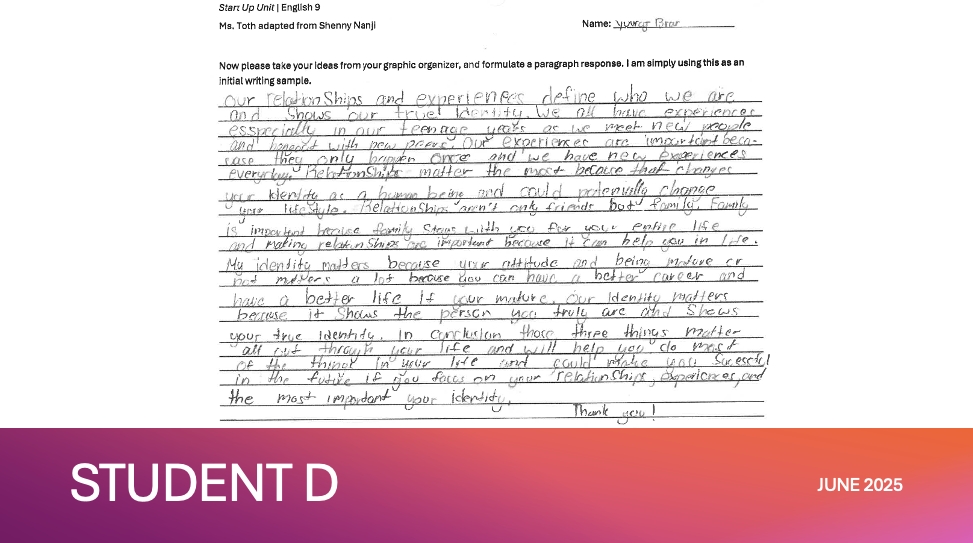 Start Up Unit | English 9
Ms. Toth adapted from Shenny Nanji
Name: Yuvraj Brar
Now please take your ideas from your graphic organizer, and formulate a paragraph response. I am simply using this as an
initial writing sample.
Our relationships and experiences define who we are
and shows our true identity. We all have experiences
esspecially in our teenage years as we meet new people
and with new peers. Our experiences are important beca-
use they only happen once and we have new experiences
everyday. Relationships matter the most because that changes
your identity as a human being and could potenially change
your lifestyle. Relationships aren't only friends but family. Family
is important because family stays with you for your entire life
and making relationships are important because it can help you in life.
My identity matters because your attitude and being mature or
not matters a lot because you can have a better career and
have a better life if your mature. Our identity matters
because it shows the person you truly are and shows
your true identity. In conclusion those three things matter
all out through your life and will help you do most
of the things in your life and could make you
in the future if you focus on your relationships, experiences, and
the most important your identity.
Thank you!
STUDENT D
JUNE 2025